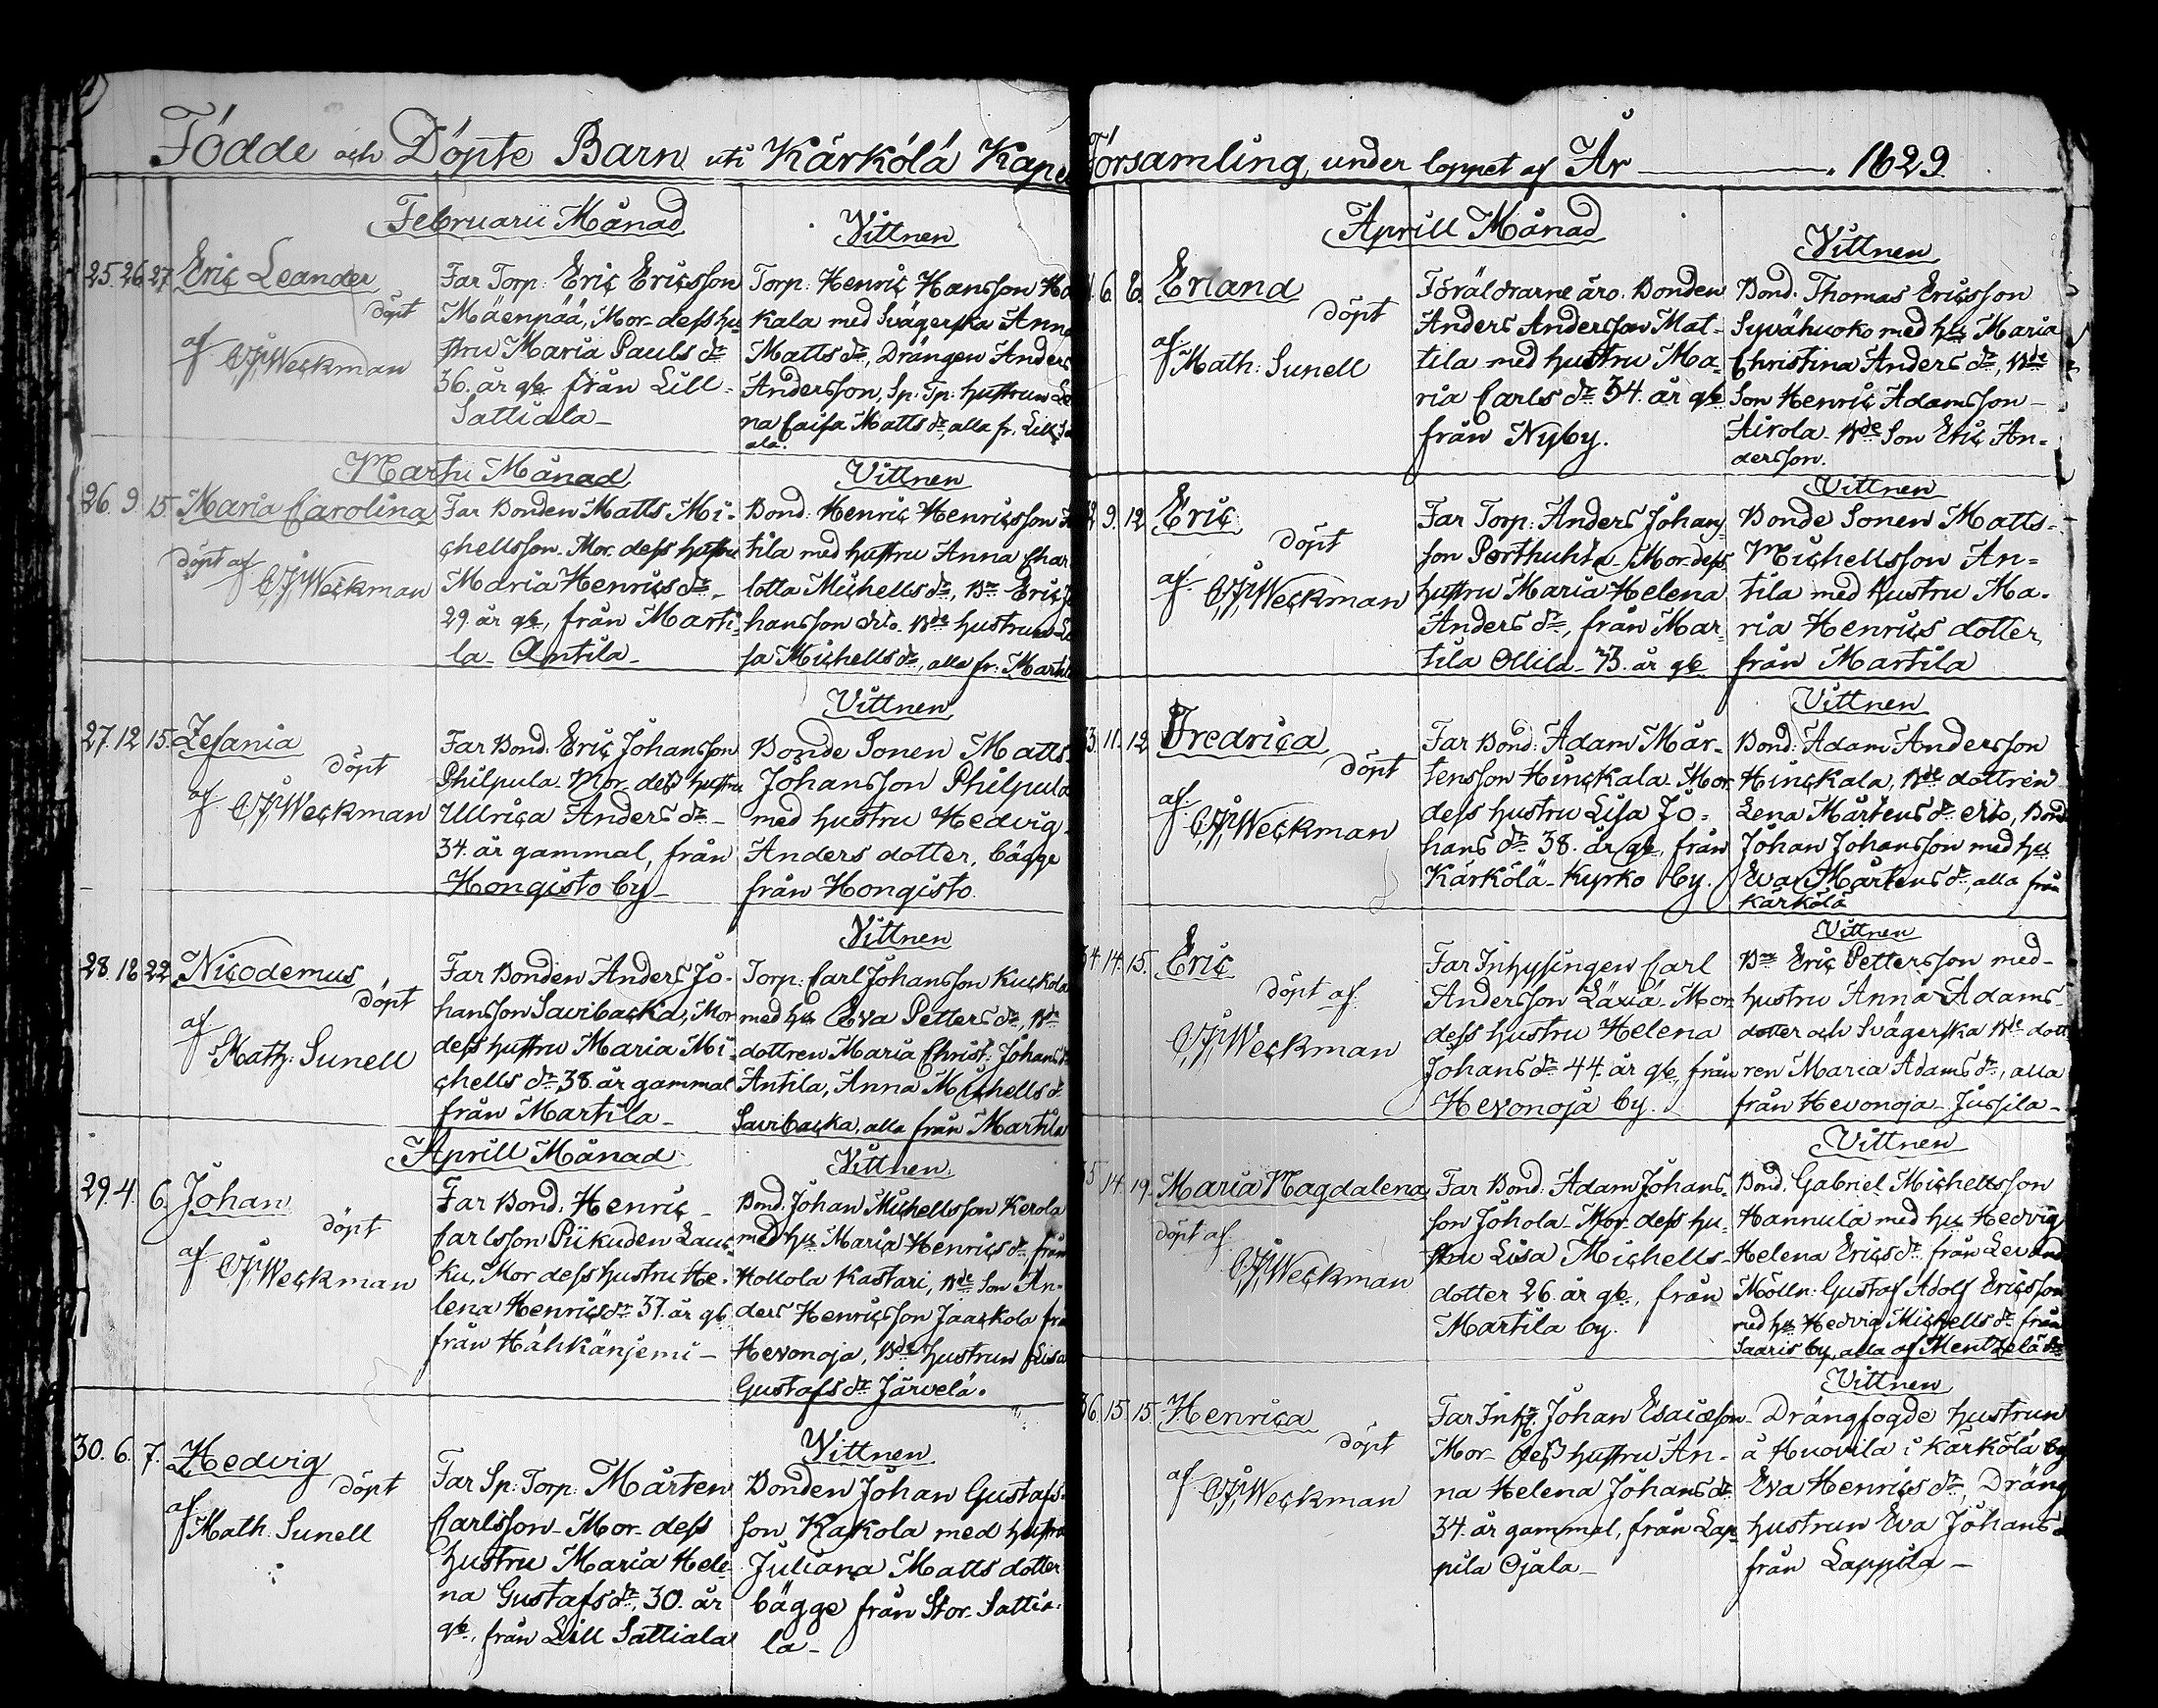 Födde och Döpte Barn uti Kärkölä Kape
Februarii Månad
Vittnen
25. 26 27. Eric Leander
döpt
af C.J. Weckman
Far Torp: Eric Ericsson
Mäenpää, Mor dess hu
stru Maria Pauls dr
36. år gl. från Lill-
Sattiala
Torp: Henric Hansson
kala med Svägerska Anna
Matts dr, Drängen Anders
Andersson, Sp: Tp: hustrun Le
na Caisa Matts dr, alla fr. Lill S
ala.
Martii Månad
Vittnen
26. 9. 15. Maria Carolina
döpt af
C.J. Weckman
Far Bonden Matts Mi-
chellsson. Mor. dess hustru
Maria Henrics dr
29. år gl., från Marti-
la Antila
Bond: Henric Henricsson
tila med hustru Anna Char
lotta Michells dr, Bn Eric J
hansson dito. Bde hustrun Li
sa Michells dr, alla fr: Martila
Vittnen
27. 12 15. Zefania
döpt
af C.J. Weckman
Far Bond. Eric Johansson
Philpula. Mor. dess hustru
Ullrica Anders dr
34. år gammal, från
Hongisto by
Bonde Sonen Matts
Johansson Philpula
med hustru Hedvig
Anders dotter, bägge
från Hongisto.
Vittnen
28. 18 22. Nicodemus
döpt
af
Math: Sunell
Far Bonden Anders Jo-
hansson Savibacka, Mor
dess hustru Maria Mi-
chells dr 38. år gammal
från Martila
Torp: Carl Johansson Kuckola
med hu Eva Petters dr, Bde
dottren Maria Christ: Johans dr
Antila, Anna Michells dr
Savibacka, alla från Martila
Aprill Månad
Vittnen
29. 4. 6. Johan
döpt
af C.J. Weckman
Far Bond. Henric
Carlsson Piikuden Lauc-
ku, Mor dess hustru He-
lena Henrics dr 37. år gl
från Hähkänjemi
Bond. Johan Michellsson Kerola
med hu Maria Henrics dr från
Hollola Kastari, Bde Son An-
ders Henricsson Jaackola frå
Hevonoja, Bde hustrun Lisa
Gustafs dr Järvelä.
30. 6. 7. Hedvig
döpt
af
Math. Sunell
Far Sp: Torp: Mårten
Carlsson Mor dess
hustru Maria Hele
na Gustafs dr, 30. år
gl., från Lill Sattiala
Vittnen
Bonden Johan Gustafs-
son Kakola med hustru
Juliana Matts dotter
bägge från Stor Sattia-
la
Församling, under loppet af År 1829
Aprill Månad
Vittnen
6. 8. Erland
döpt
af
Math: Sunell
Föräldrarne äro. Bonden
Anders Andersson Mat-
tila med hustru Ma-
ria Carls dr 34. år gl
från Nyby.
Bond. Thomas Ericsson
Syvähuoko med hu Maria
Christina Anders dr, Bde
Son Henric Adamsson
Airola Bde Son Eric An-
dersson.
Vittnen
2. 9. 12. Eric
döpt
af C.J. Weckman
Far Torp: Anders Johans
son Porthuhta Mor. dess
hustru Maria Helena
Anders dr, från Mar-
tila Ollila år gl
Bonde Sonen Matts
Michellsson An-
tila med hustru Ma-
ria Henrics dotter
från Martila
Vittnen
3. 11. 12. Fredrica
döpt
af
C.J. Weckman
Far Bond: Adam Mår-
tensson Hinckala. Mor
dess hustru Lisa Jo-
hans dr 38. år gl. från
Kärkölä Kyrko by.
Bond: Adam Andersson
Hinckala, Bde dottren
Lena Mårtens dr dito, Bond
Johan Johansson med hu
Eva Mårtens dr, alla från
Kärkölä
Vittnen
34. 14. 15. Eric
döpt af
C.J. Weckman
Far Inhysingen Carl
Andersson Läxiä. Mor
dess hustru Helena
Johans dr 44. år gl, från
Hevonoja by.
Bn Eric Pettersson med
hustru Anna Adams
dotter och Svägerska Bde dott
ren Maria Adams dr, alla
från Hevonoja Jussila
Vittnen
5 14. 19. Maria Magdalena
döpt af
C.J. Weckman
Far Bond. Adam Johans-
son Johola. Mor dess hu-
stru Lisa Michells-
dotter 26. år gl., från
Martila by.
Bond. Gabriel Michellsson
Hannula med hu Hedvig
Helena Erics dr från
Mölln: Gustaf Adolf Ericsson
med hu Hedvig Michells dr från
Saaris by, alla af Mentzelä
Vittnen
36. 15. 15. Henrica
döpt
af C.J. Weckman
Far Inh. Johan Esaiæson
Mor dess hustru An-
na Helena Johans dr
34. år gammal, från Lap
pila Ojala
Drängfogde hustrun
å Huovila i Kärkölä by
Eva Henrics dr, Dräng
hustrun Eva Johans
från Lappila